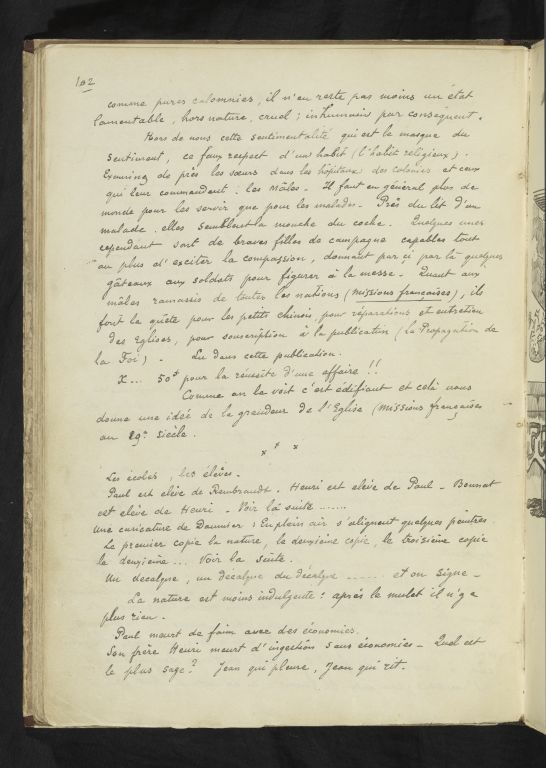 102
comme pures calomnies, il n'en reste pas moins un état
lamentable, hors nature, cruel ; inhumain par conséquent.
Hors de nous cette sentimentalité qui est le masque du
sentiment, ce faux respect d'un habit (l'habit religieux).
Examinez de près les sœurs dans les hôpitaux des colonies et ceux
qui leur commandent : les mâles. Il faut en général plus de
monde pour les servir que pour les malades. Près du lit d'un
malade elles semblent la mouche du coche. Quelques unes
cependant sont de braves filles de campagne capables tout
au plus d'exciter la compassion, donnant par ci par là quelques
gâteaux aux soldats pour figurer à la messe. Quant aux
mâles ramassis de toutes les nations (missions françaises), ils
font la quête pour les petits chinois, pour réparations et entretien
des Eglises, pour souscription à la publication (la Propagation de
la Foi) - Lu dans cette publication.
X... 50f pour la réussite d'une affaire !!
Comme on le voit c'est édifiant et celà nous
donne une idée de la grandeur de l'Eglise (missions françaises
au 19me siècle.
x x x
Les écoles, les élèves.
Paul est élève de Rembrandt. Henri est élève de Paul - Bonnat
est élève de Henri - Voir la suite ......
Une caricature de Daumier : En plein air s'alignent quelques peintres.
Le premier copie la nature, le deuxième copie, le troisième copie
le deuxième... Voir la suite.
Un decalque, un décalque du décalque ..... et on signe -
La nature est moins indulgente : après le mulet il n'y a
plus rien.
Paul meurt de faim avec des économies.
Son frère Henri meurt d'ingestion sans économies - Quel est
le plus sage ? Jean qui pleure, Jean qui rit.